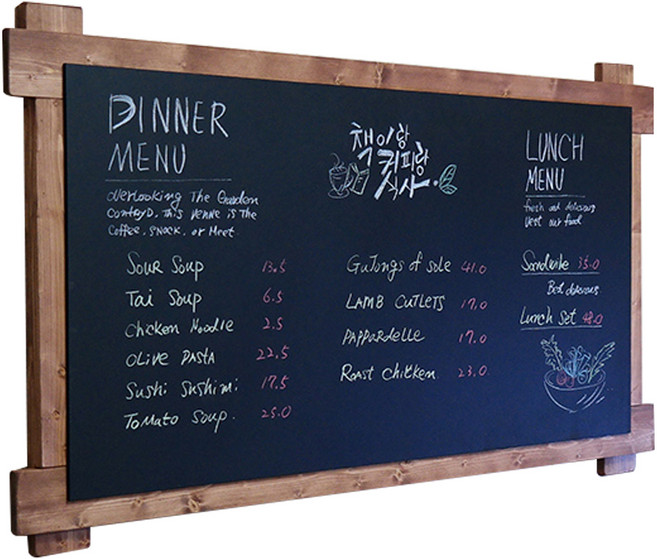 DINNER
MENU
overlooking The Garden
Contoyd. This Venne is the
Coffee, Snack, or Meet
책이랑
커피랑
식사
LUNCH
MENU
fresh and delicious
Best our food
Sour Soup 13.5
Tai Soup 6.5
Chicken Noodle 2.5
Olive Pasta 22.5
Sushi Sushimi 17.5
Tomato Soup. 25.0
GuJongs of sole 41.0
LAMB CUTLETS 17.0
PAPPARdelle 17.0
Roast Chicken 23.0
35.0
Best delicious
Lunch Set 48.0